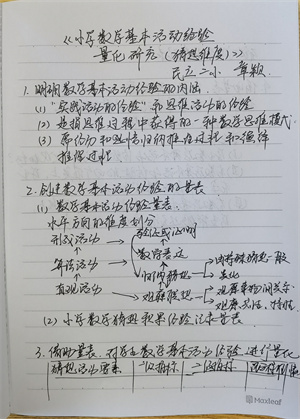 《小学数学基本活动经验
量化研究（猜想维度）》
民立二小 章颖
1. 明确数学基本活动经验的内涵
(1) "实践活动的经验"和思维活动的经验
(2) 是指思维过程中获得的一种数学思维模式
(3) 即伦力和
归纳推理过程和演绎
推理过程
2. 创建数学基本活动经验的量表
(1) 数学基本活动经验量表
水平方向的维度划分
形式活动 → 验证或证明
↑ 数学表达
算法活动 → 归纳猜想 → 由特殊猜想一般
↑ 类化
直观活动 → 观察联想 → 观察事物间关系
观察共性、特性
(2) 小学数学猜想预累经验记录量表
3. 借助量表，对学生数学基本活动经验进行量化
猜想活动要素 一级指标 二级指标
Maxleaf